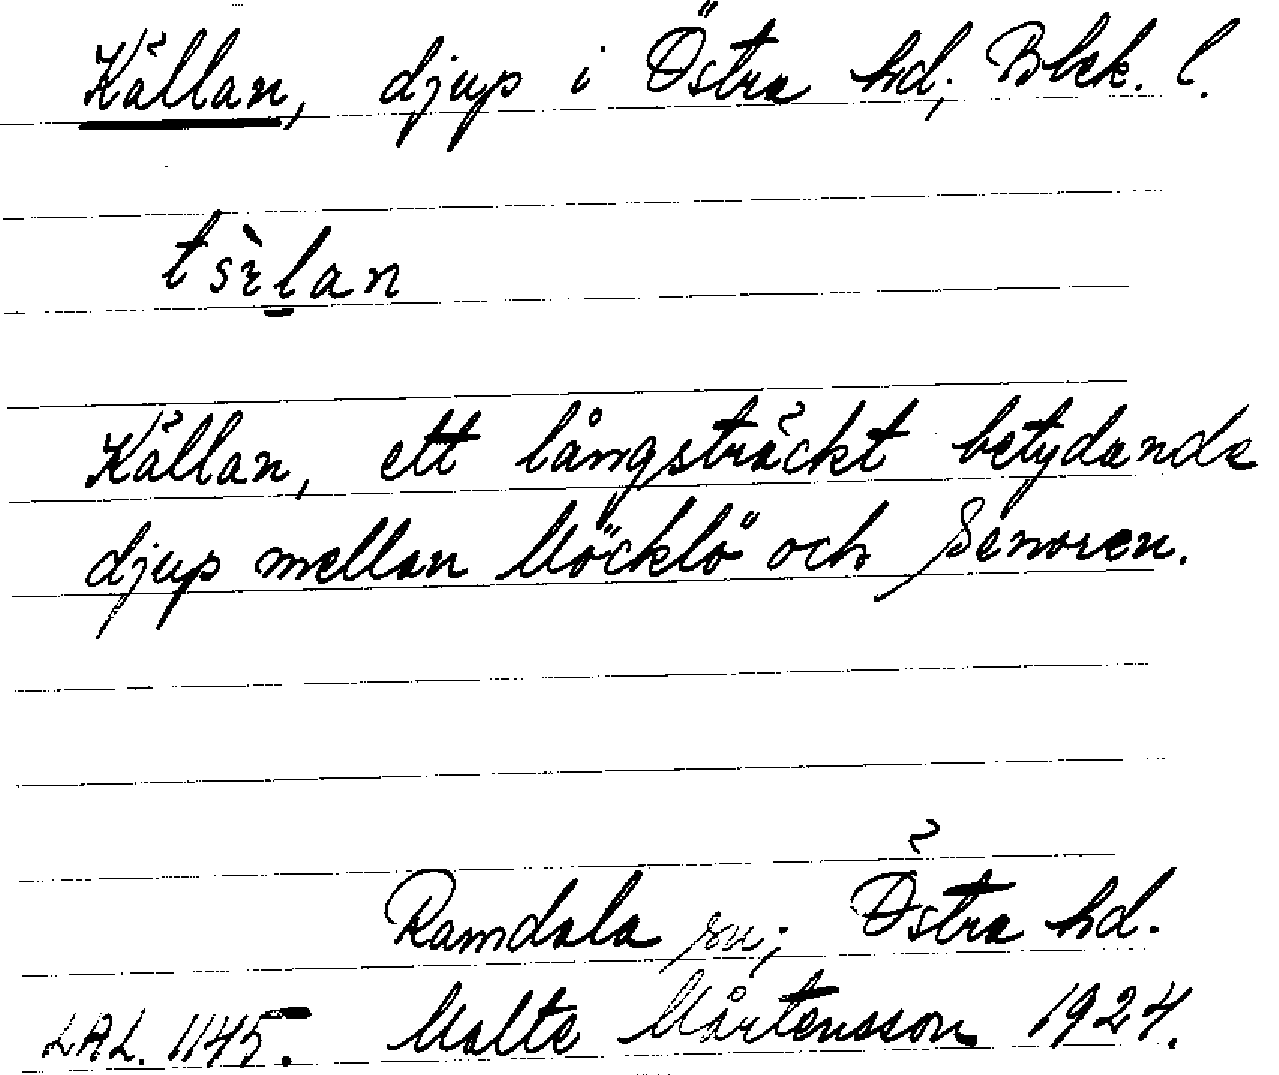 Källan, djup i Östra hd; Blek. l.
tsɛ̀lan
Källan, ett långsträckt betydande
djup mellan Möcklö och Senoren.
Ramdala sn; Östra hd.
LAL. 1145. Malte Mårtensson 1924.